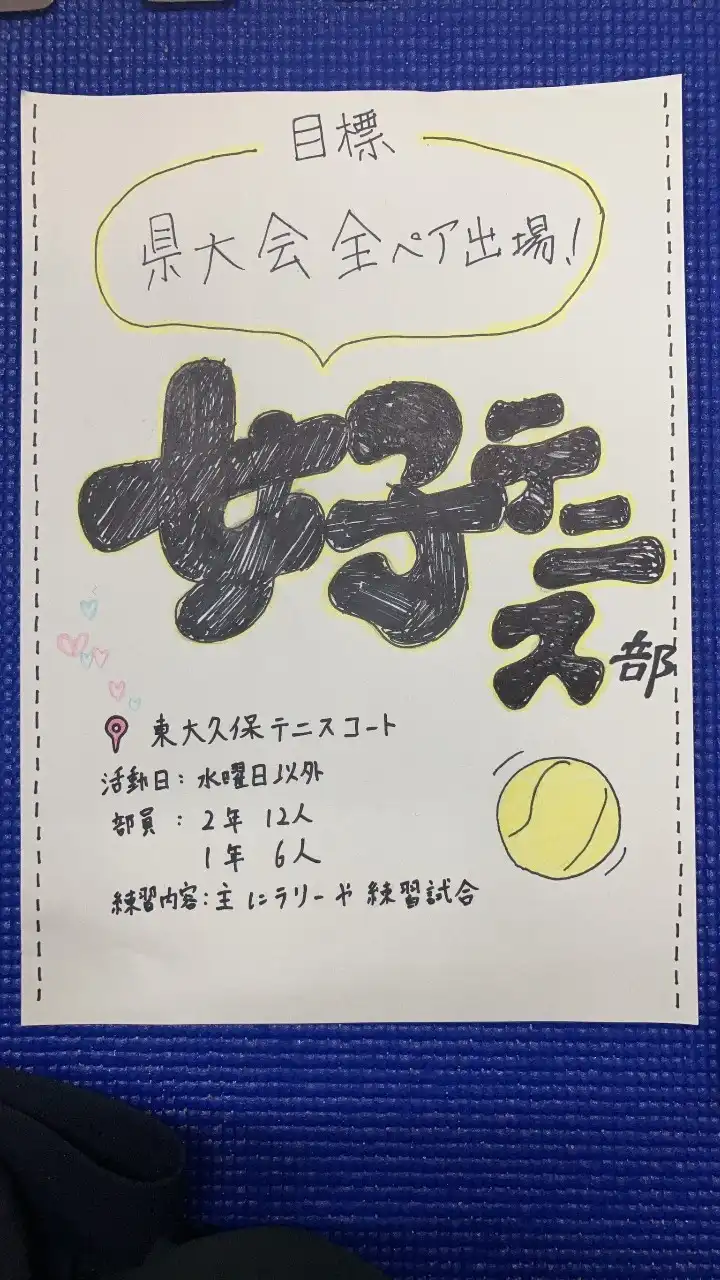 目標
県大会 全ペア出場!
女子テニス部
東大久保テニスコート
活動日: 水曜日以外
部員 : 2年 12人
1年 6人
練習内容: 主にラリーや練習試合